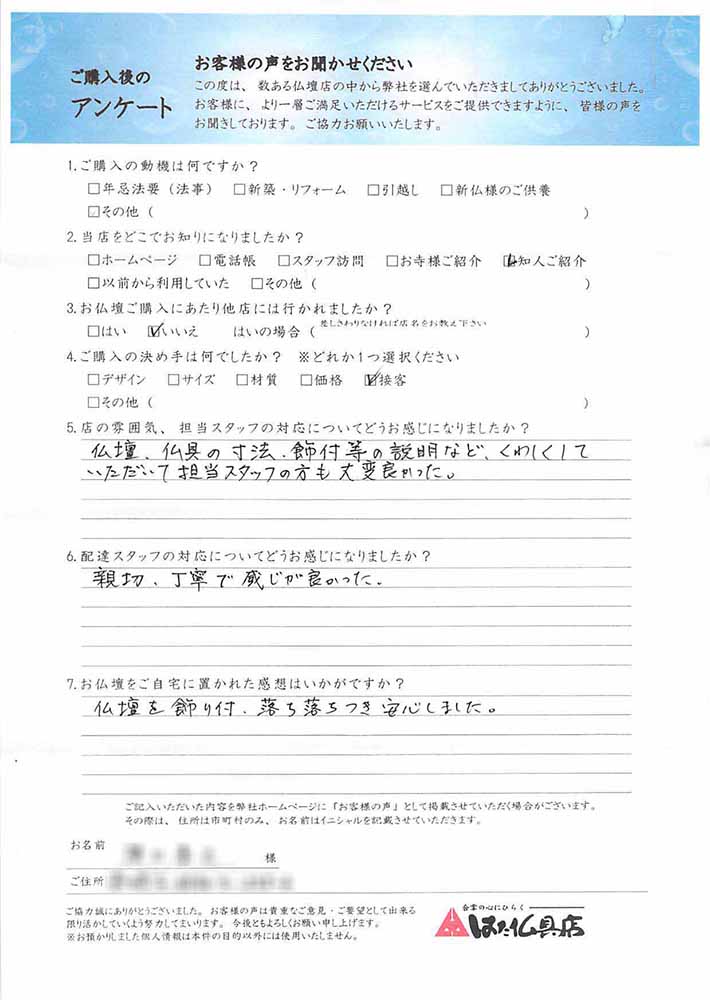 ご購入後の
アンケート
お客様の声をお聞かせください
この度は、数ある仏壇店の中から弊社を選んでいただきましてありがとうございました。
お客様に、より一層ご満足いただけるサービスをご提供できますように、皆様の声を
お聞きしております。ご協力お願いいたします。
1.ご購入の動機は何ですか？
□年忌法要（法事） □新築・リフォーム □引越し □新仏様のご供養
□その他（ ）
2.当店をどこでお知りになりましたか？
□ホームページ □電話帳 □スタッフ訪問 □お寺様ご紹介 ☑知人ご紹介
□以前から利用していた □その他（ ）
3.お仏壇ご購入にあたり他店には行かれましたか？
□はい ☑いいえ はいの場合（差しさわりなければ店名をお教え下さい ）
4.ご購入の決め手は何でしたか？ ※どれか1つ選択ください
□デザイン □サイズ □材質 □価格 ☑接客
□その他（ ）
5.店の雰囲気、担当スタッフの対応についてどうお感じになりましたか？
仏壇、仏具の寸法、飾付等の説明など、くわしくして
いただいて担当スタッフの方も大変良かった。
6.配達スタッフの対応についてどうお感じになりましたか？
親切、丁寧で感じが良かった。
7.お仏壇をご自宅に置かれた感想はいかがですか？
仏壇を飾り付、落ち落ちつき安心しました。
ご記入いただいた内容を弊社ホームページに『お客様の声』として掲載させていただく場合がございます。
その際は、住所は市町村のみ、お名前はイニシャルを記載させていただきます。
お名前 様
ご住所
ご協力誠にありがとうございました。お客様の声は貴重なご意見・ご要望として出来る
限り活かしていくよう努力してまいります。今後ともよろしくお願い申し上げます。
※お預かりしました個人情報は本件の目的以外には使用いたしません。
合掌の心にひらく
はた仏具店